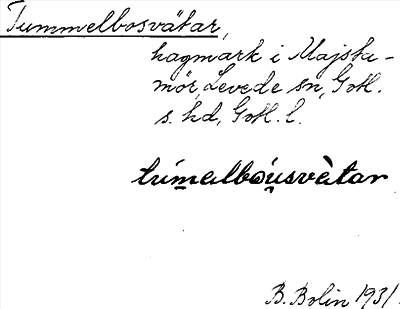 Tummelbosvätar,
hagmark i Majsta-
mör, Levede sn, Gotl.
s. hd, Gotl. l.
túmalbóu̯svàtar
B. Bolin 1931.